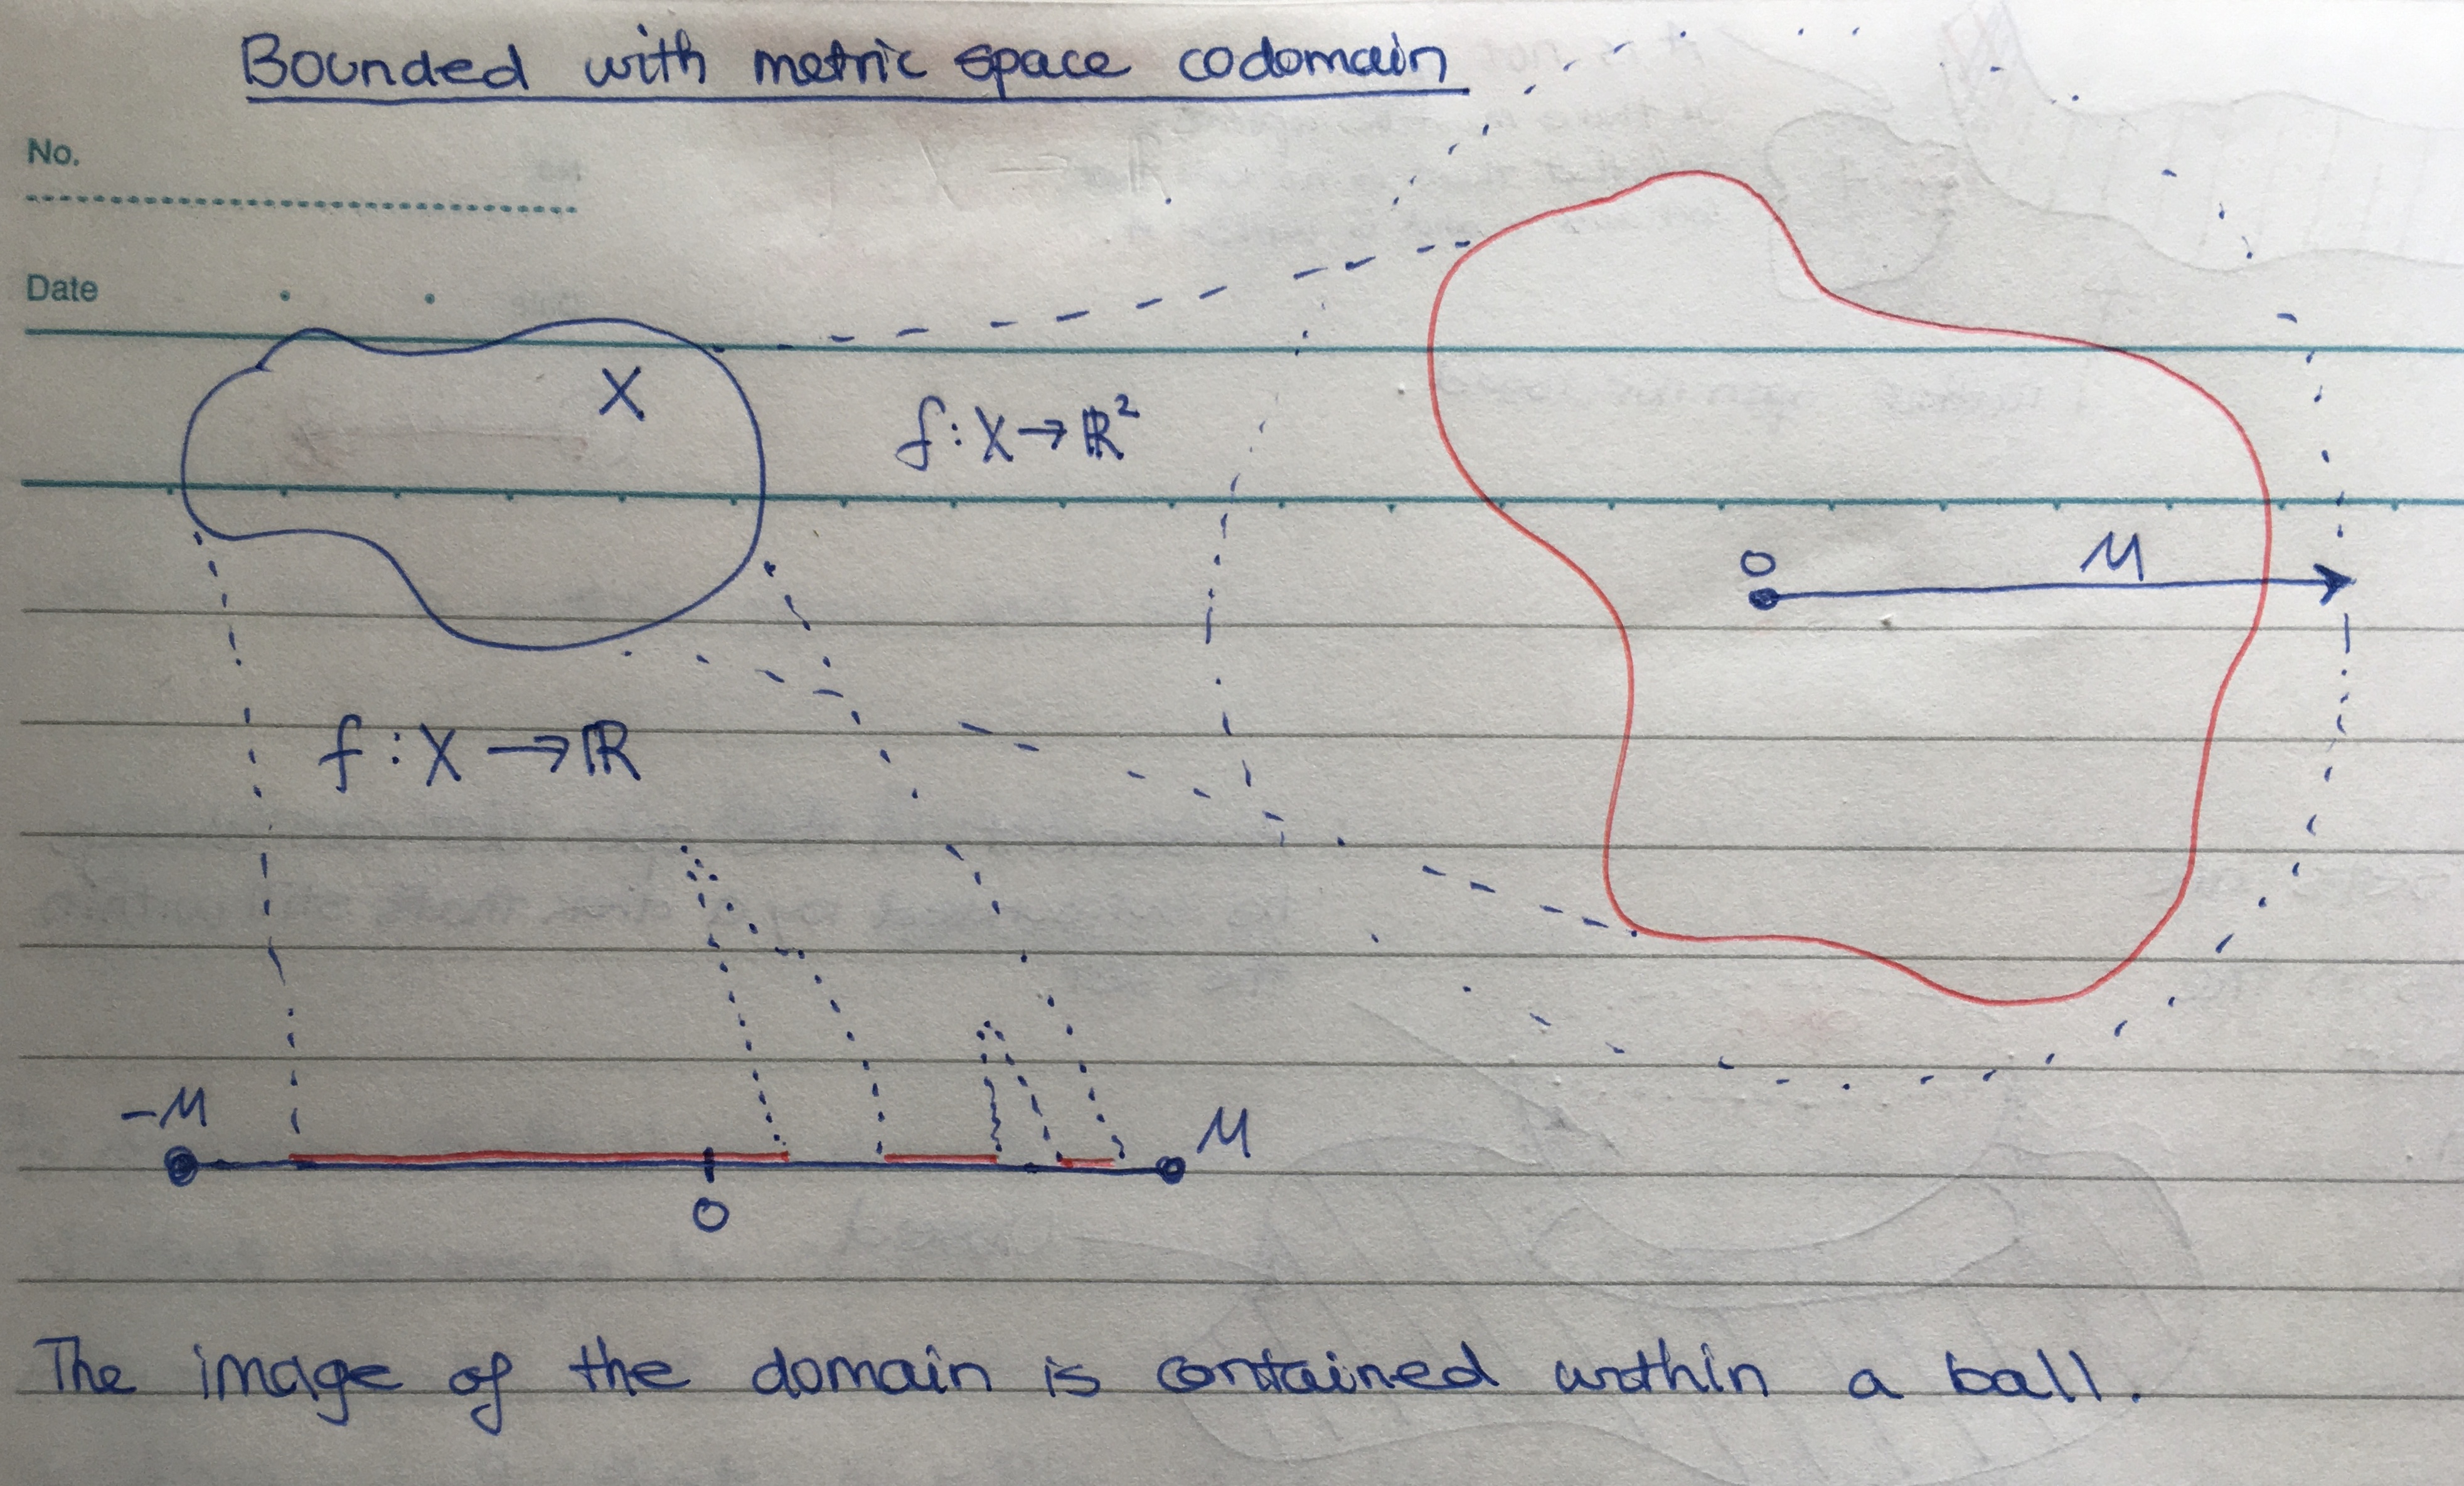 Bounded with metric space codomain
No.
Date
X
f: X → ℝ²
0
M
f: X → ℝ
-M
M
0
The image of the domain is contained within a ball.